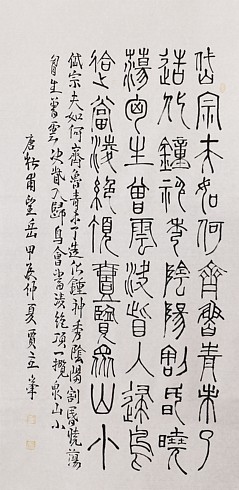 岱宗夫如何齊魯青未了
造化鍾神秀陰陽割昏曉
蕩胸生曾雲決眥入歸鳥
會當凌絕頂壹覽眾山小
岱宗夫如何齊魯青未了造化鍾神秀陰陽割昏曉蕩
胸生曾雲決眥入歸鳥會當凌絕頂一覽眾山小
唐杜甫望岳甲辰仲夏賈立